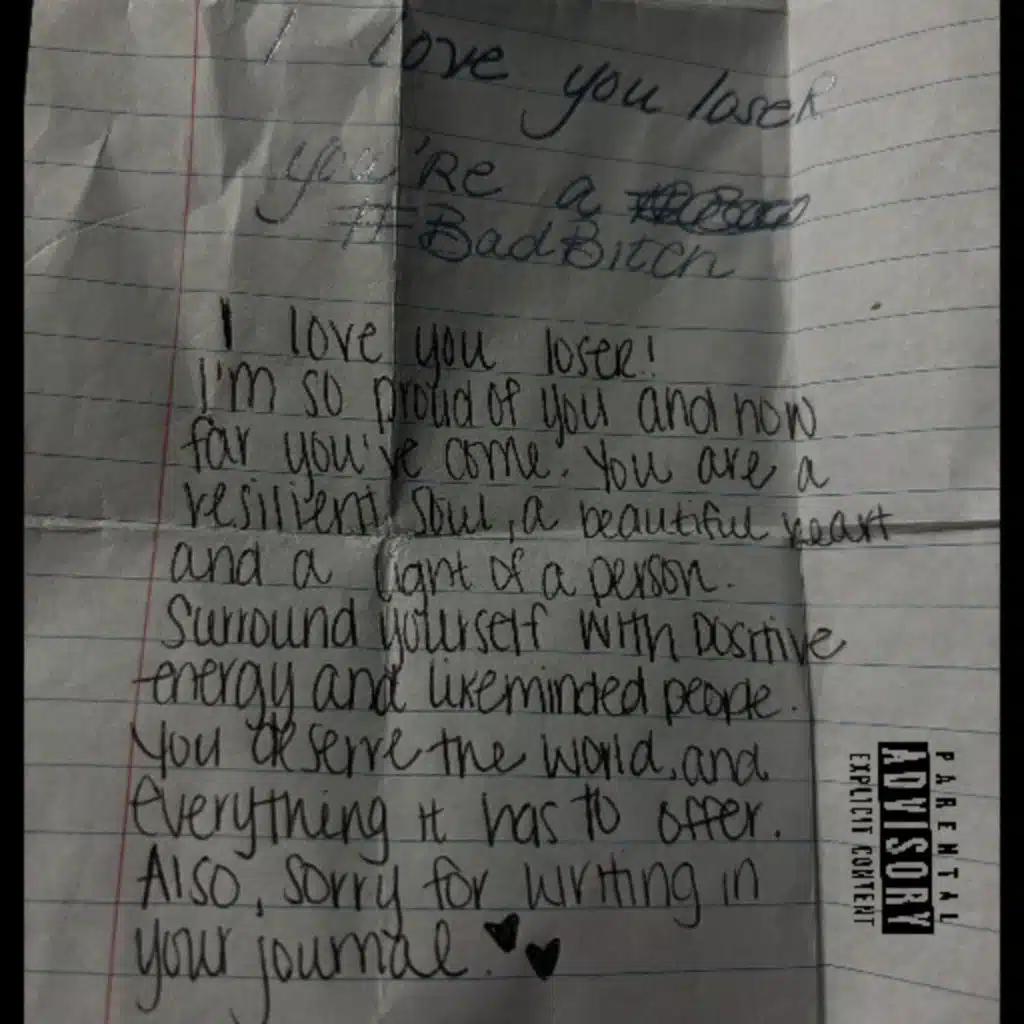 I love you loser
you're a
#BadBitch
I love you loser!
I'm so proud of you and how
far you've come. You are a
resilient soul, a beautiful heart
and a light of a person.
Surround yourself with positive
energy and likeminded people.
You deserve the world, and
everything it has to offer.
Also, sorry for writing in
your journal.
PARENTAL
ADVISORY
EXPLICIT CONTENT